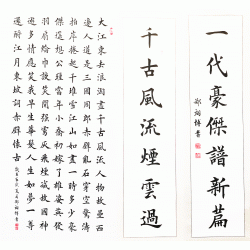 一代豪傑譜新篇
千古風流煙雲過
大江東去浪淘盡千古風流人物故壘西
邊人道是三國周郎赤壁亂石穿空驚濤
拍岸捲起千堆雪江山如畫一時多少豪
傑遙想公瑾當年小喬初嫁了雄姿英發
羽扇綸巾談笑間強虜灰飛煙滅故國神
遊多情應笑我早生華髮人生如夢一尊
還酹江月東坡詞赤壁懷古